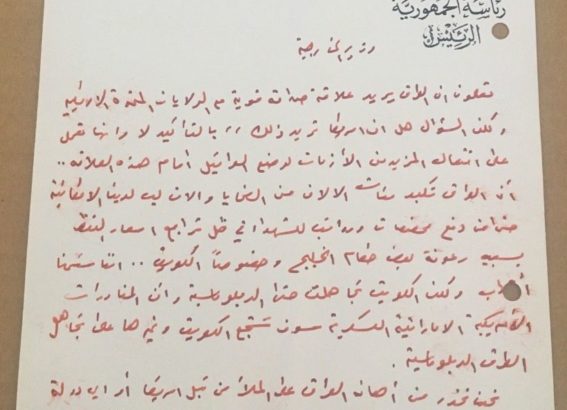 رئاسة الجمهورية
الرئيس
وزير الخارجية
تعلمون ان العراق يريد علاقة صداقة قوية مع الولايات المتحدة الامريكية
ولكن السؤال هل ان امريكا تريد ذلك ،، بالتأكيد لا وانها تعمل
على افتعال المزيد من الأزمات لوضع العراقيل امام هذه العلاقة ..
أن العراق تكبد مئات الالاف من الضحايا والان ليس لدينا الامكانية
حتى دفع مخصصات ورواتب للشهداء في ظل تراجع اسعار النفط
بسبب رعونة بعض حكام الخليج وخصوصاً الكويت .. اننا
ولكن الكويت تجاهلت حتى الدبلوماسية وان المناورات
الأمريكية الاماراتية العسكرية سوف تشجع الكويت وغيرها على تجاهل
الطرق الدبلوماسية .
نحن نحذر من أهانة العراق على الملأ من قبل امريكا أو اي دولة